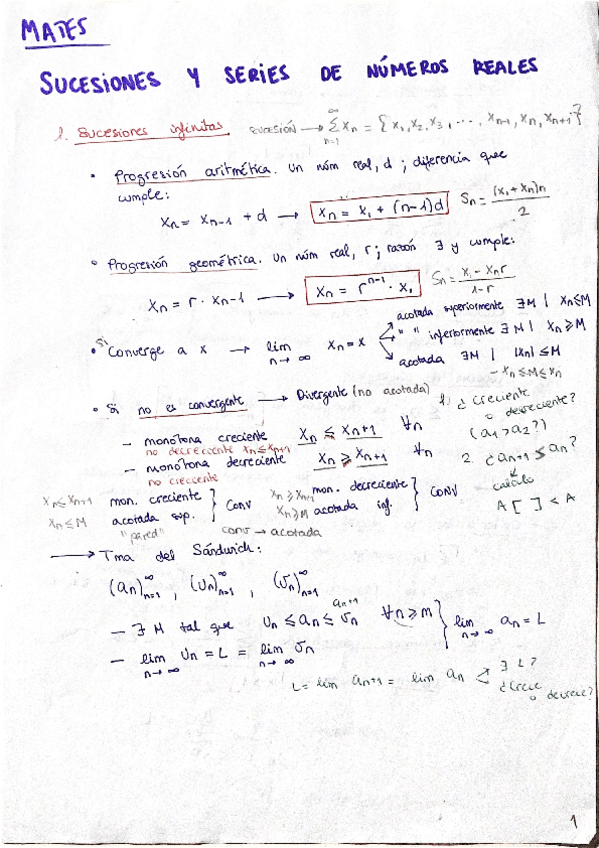 MATES
SUCESIONES Y SERIES DE NÚMEROS REALES
1. Sucesiones infinitas. SUCESIÓN → ∑_{n=1}^{∞} x_n = {x_1, x_2, x_3, ..., x_{n-1}, x_n, x_{n+1}}
• Progresión aritmética. Un núm real, d ; diferencia que
cumple:
x_n = x_{n-1} + d → x_n = x_1 + (n-1)d S_n = (x_1 + x_n)n / 2
• Progresión geométrica. Un núm real, r ; razón ∃ y cumple:
x_n = r · x_{n-1} → x_n = r^{n-1} · x_1 S_n = x_1 - x_n r / 1-r
• Si Converge a x → lim_{n→∞} x_n = x
acotada superiormente ∃ M | x_n ≤ M
" " inferiormente ∃ M | x_n ≥ M
acotada ∃ M | |x_n| ≤ M
- x_n ≤ M ≤ x_n
• Si no es convergente → Divergente (no acotada)
- monótona creciente x_n ≤ x_{n+1} ∀n
no decreciente x_n ≤ x_{n+1}
- monótona decreciente x_n ≥ x_{n+1} ∀n
no creciente
1) ¿creciente
o decreciente?
(a_1 > a_2?)
2. ¿a_{n+1} ≤ a_n?
cálculo
A [ ] < A
x_n ≤ x_{n+1} mon. creciente } CONV
x_n ≤ M acotada sup.
"pared"
x_n ≥ x_{n+1} mon. decreciente } CONV
x_n ≥ M acotada inf.
conv → acotada
→ Tma del Sándwich:
(a_n)_{n=1}^{∞} , (u_n)_{n=1}^{∞} , (v_n)_{n=1}^{∞}
- ∃ M tal que u_n ≤ a_n ≤ v_n ∀n ≥ M } lim_{n→∞} a_n = L
a_{n+1}
- lim_{n→∞} u_n = L = lim v_n
L = lim a_{n+1} = lim a_n
∃ L?
¿crece
o decrece?
1